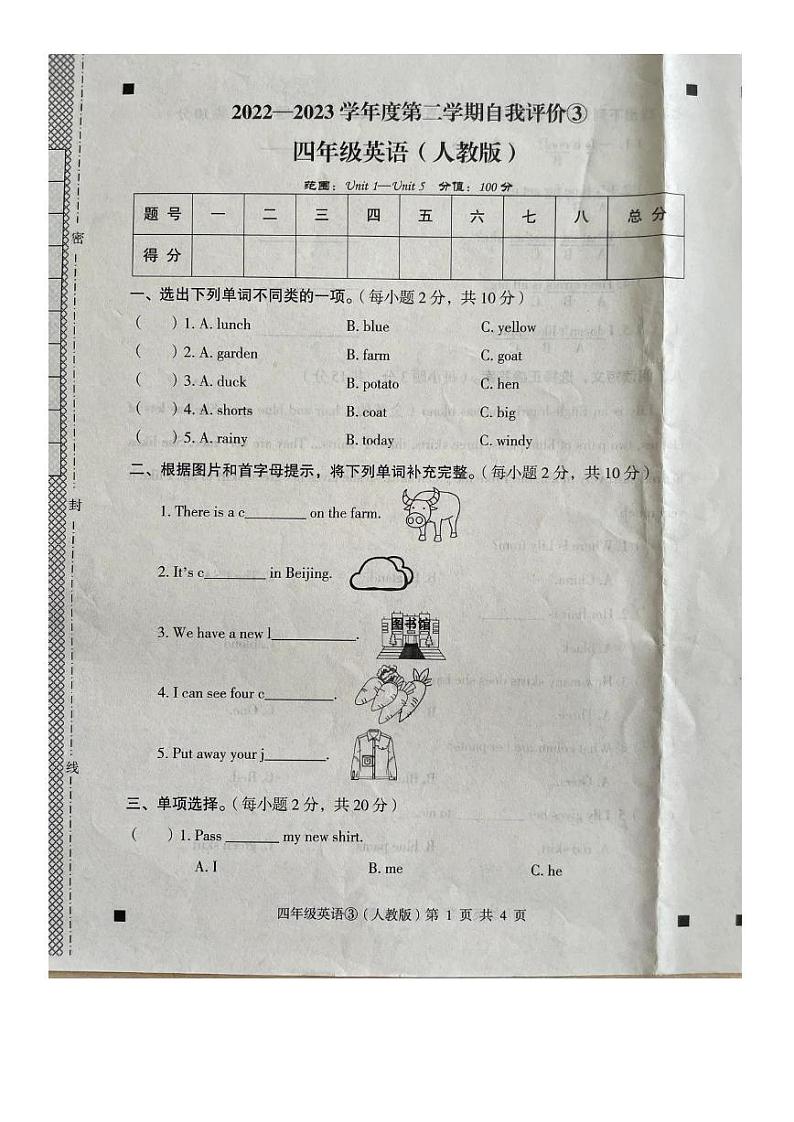 2022—2023 学年度第二学期自我评价③
四年级英语（人教版）
范围：Unit 1—Unit 5 分值：100 分
题 号 一 二 三 四 五 六 七 八 总 分
得 分
一、选出下列单词不同类的一项。（每小题 2 分，共 10 分）
( ) 1. A. lunch B. blue C. yellow
( ) 2. A. garden B. farm C. goat
( ) 3. A. duck B. potato C. hen
( ) 4. A. shorts B. coat C. big
( ) 5. A. rainy B. today C. windy
二、根据图片和首字母提示，将下列单词补充完整。（每小题 2 分，共 10 分）
1. There is a c________ on the farm.
2. It's c________ in Beijing.
3. We have a new l___________.
图书馆
4. I can see four c_________.
5. Put away your j________.
三、单项选择。（每小题 2 分，共 20 分）
( ) 1. Pass _______ my new shirt.
A. I B. me C. he
四年级英语③（人教版）第 1 页 共 4 页
密
封
线